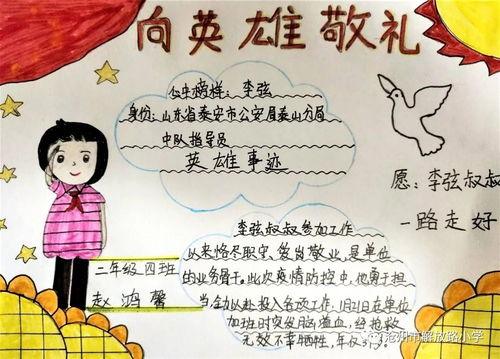 向英雄敬礼
心中榜样：李弦
身份：山东省泰安市公安局泰山分局
中队指导员
英雄事迹
愿：李弦叔叔
一路走好
李弦叔叔参加工作
以来恪尽职守、爱岗敬业，是单位
的业务骨干。此次疫情防控中，他勇于担
当，全力以赴投入各项工作，1月21日在单位
加班时突发脑溢血，经抢救
无效不幸牺牲，年仅37岁。
二年级四班
赵鸿馨
沧州市解放路小学